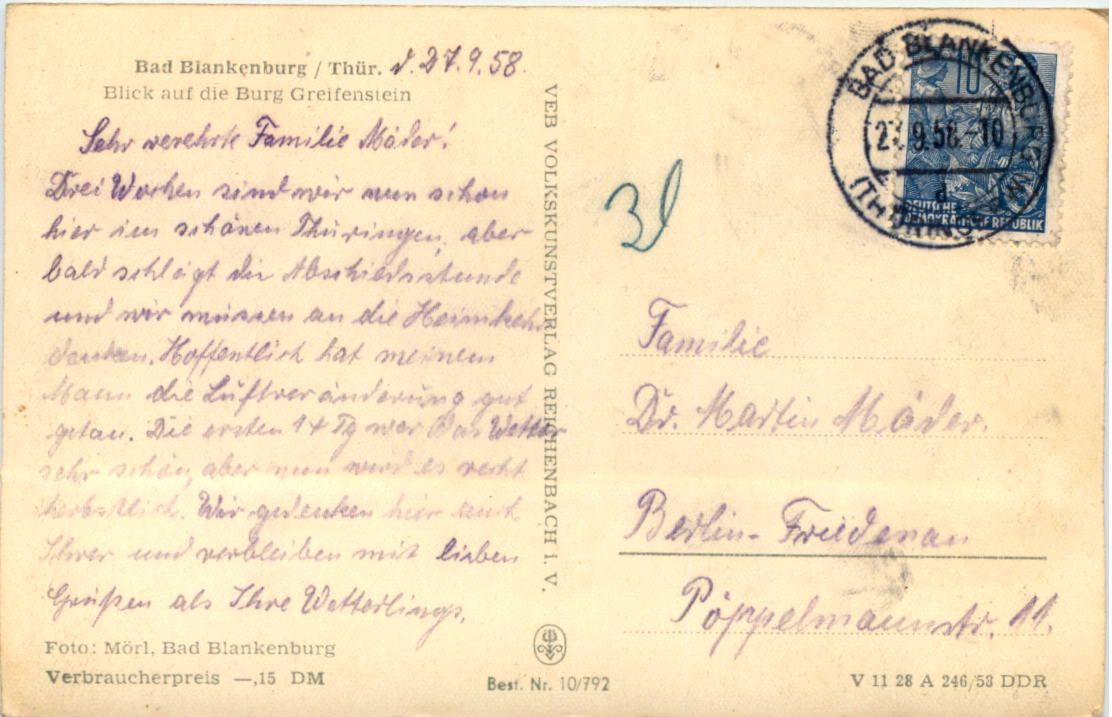 Bad Blankenburg / Thür. d. 27.9.58.
Blick auf die Burg Greifenstein
Sehr verehrte Familie Mäder!
Drei Wochen sind wir nun schon
hier im schönen Thüringen, aber
bald schlägt die Abschiedsstunde
und wir müssen an die Heimkehr
denken. Hoffentlich hat meinem
Mann die Luftveränderung gut
getan. Die ersten 14 Tg war das Wetter
sehr schön, aber nun wird es recht
herbstlich. Wir gedenken hier auch
Ihrer und verbleiben mit lieben
Grüßen als Ihre Wetterlings.
Foto: Mörl, Bad Blankenburg
Verbraucherpreis —,15 DM
VEB VOLKSKUNSTVERLAG REICHENBACH I. V.
Best. Nr. 10/792
BAD BLANKENBURG
27.9.58.-10
d
10
DEUTSCHE
DEMOKRATISCHE REPUBLIK
Familie
Dr. Martin Mäder.
Berlin-Friedenau
Pöppelmannstr. 11.
V 11 28 A 246/58 DDR